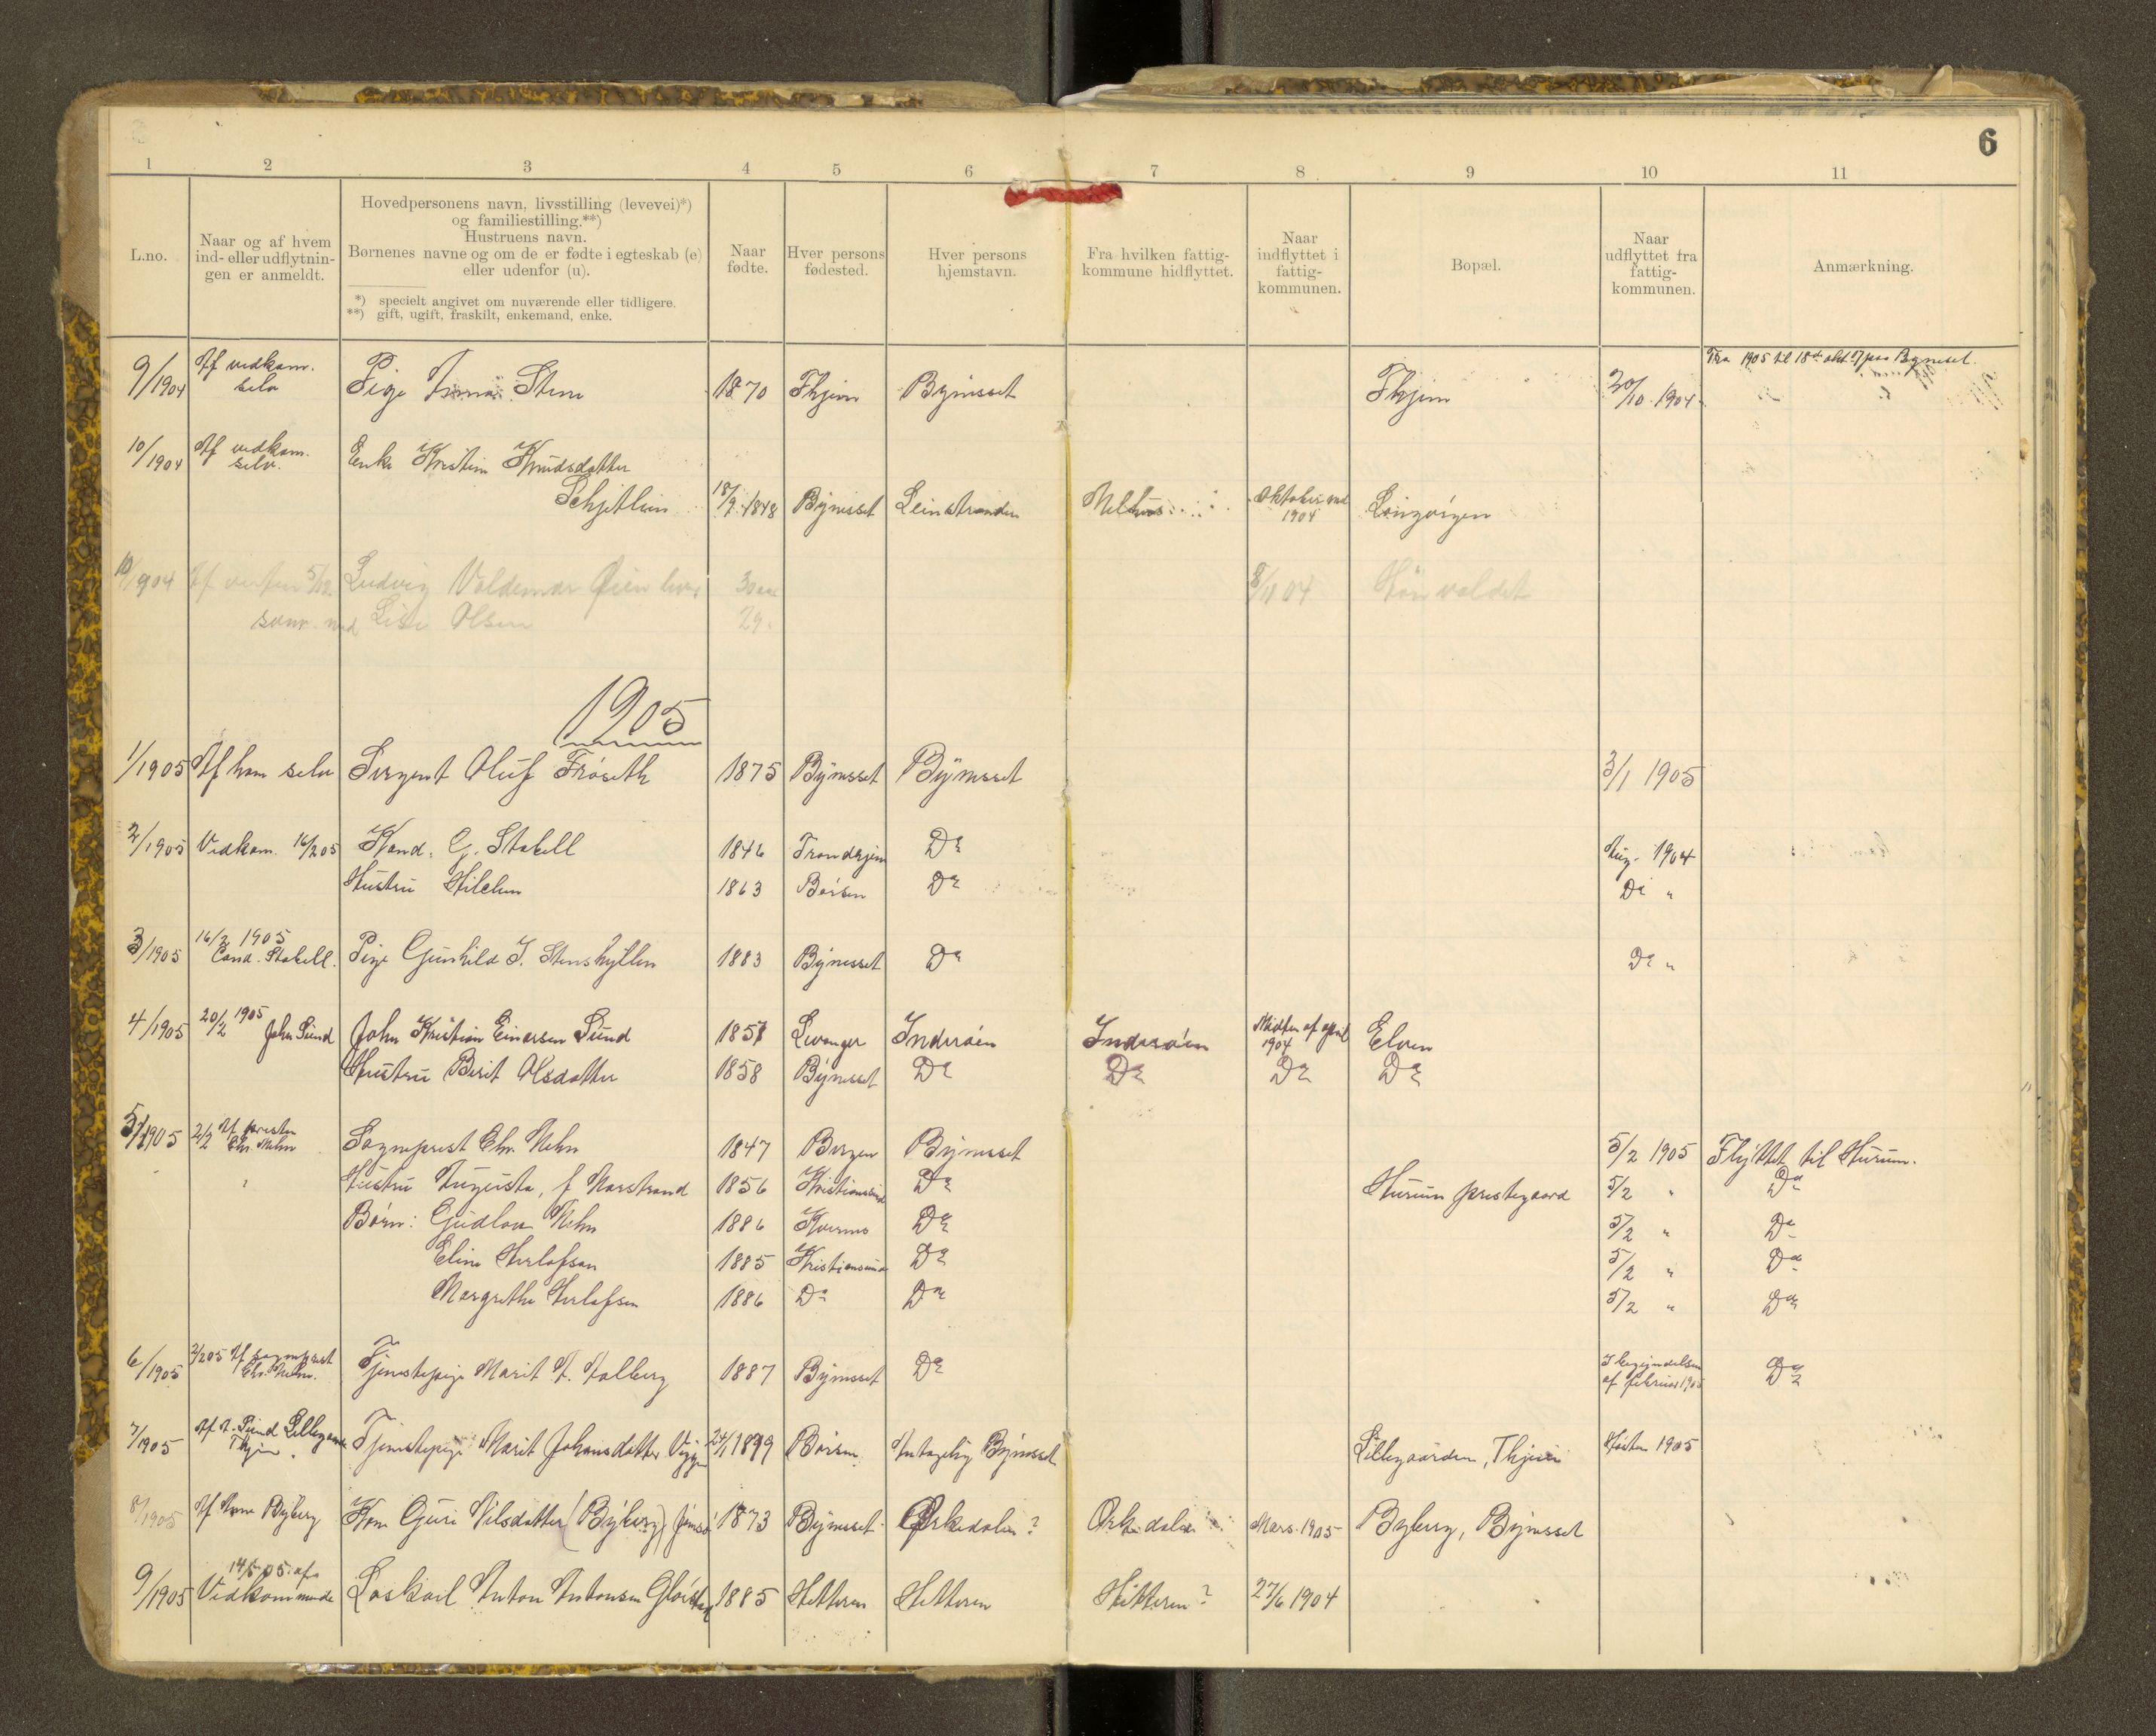 6
1 2 3 4 5 6 7 8 9 10 11
L.no.
Naar og af hvem
ind- eller udflytnin-
gen er anmeldt.
Hovedpersonens navn, livsstilling (levevei)*)
og familiestilling.**)
Hustruens navn.
Børnenes navne og om de er fødte i egteskab (e)
eller udenfor (u).
*) specielt angivet om nuværende eller tidligere.
**) gift, ugift, fraskilt, enkemand, enke.
Naar
fødte.
Hver persons
fødested.
Hver persons
hjemstavn.
Fra hvilken fattig-
kommune hidflyttet.
Naar
indflyttet i
fattig-
kommunen.
Bopæl.
Naar
udflyttet fra
fattig-
kommunen.
Anmærkning.
Fra 1905 til 18de okt. 07 paa Bynesset.
9/1904 Af vedkom. selv Pige Anna Stene 1870 Thjem Bynesset Thjem 20/10 1904
10/1904 Af vedkom. selv. Enke Kristine Knudsdatter
Schjetlein 18/9 1848 Bynesset Leinstranden Melhus Oktober 1904
10/904 Af 5/12. Ludvig Valdemar Øien 30 aar 8/11 04
sam. med Lise Olsen 29.
1905
1/1905 Af ham selv Sergent Oluf Frøseth 1875 Bynesset Bynesset 3/1 1905
2/1905 Vedkom. 16/2 05 Kand. G. Stabell 1846 Trondhjem Do Aug. 1904
Hustru 1863 Børsen Do Do "
3/1905 16/2 1905 Cand. Stabell. Pige Gunhild J. Stenshyllen 1883 Bynesset Do Do "
4/1905 20/2 1905 John Sund John Kristian Einarsen Sund 1857 Levanger Inderøen Inderøen Midten af april 1904 Elven
Hustru Berit Olsdatter 1858 Bynesset Do Do Do Do
5/1905 2/2 Af presten Chr. Sogneprest Chr. 1847 Bergen Bynesset 5/2 1905 Flyttet til Hurum.
Hustru Augusta, f. Marstrand 1856 Kristianssund Do Hurum prestegaard 5/2 " Do
Børn: Gudlov 1886 Do 5/2 " Do
Elina Herlofsen 1885 Kristianssund Do 5/2 " Do
Margrethe Herlofsen 1886 Do Do 5/2 " Do
6/1905 2/2 05 Af sogneprest Chr. Tjenestepige Marit A. 1887 Bynesset Do I begyndelsen af februar 1905 Do
7/1905 Af A. Sund Lillegaarden Thjem. Tjenestepige Marit Johansdatter Viggen 24/1 1899 Børsen Antagelig Bynesset Lillegaarden, Thjem Høsten 1905
8/1905 Af Arne Byberg Kone Guri Nilsdatter (Byberg) 1873 Bynesset Orkedalen? Orkedalen Mars 1905 Byberg, Bynesset
9/1905 14/5 05 af Vedkommende Løskarl Anton Antonsen 1885 Hitteren Hitteren Hitteren? 27/6 1904